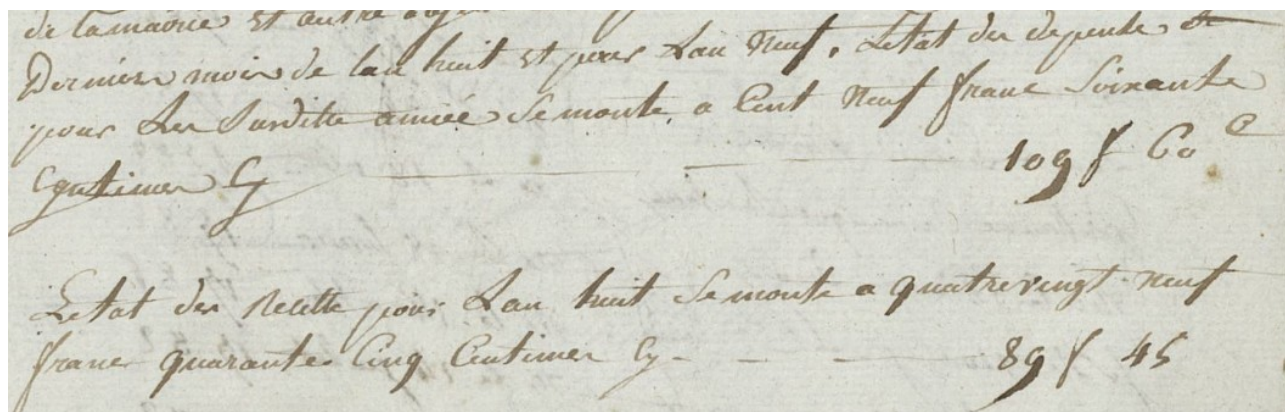 de lamairie et autre obj
Dernier moir de lan huit et pour Lan Neuf. Letat der depense de
pour Ler Surditte année Semonte a Cent Neuf franc Soixante
Centimer Cy — — — 109 f 60 c
Letat der Recette pour Lan huit Semonte a quatrevingt neuf
franc quarante Cinq Centimer Cy - - — 89 f 45